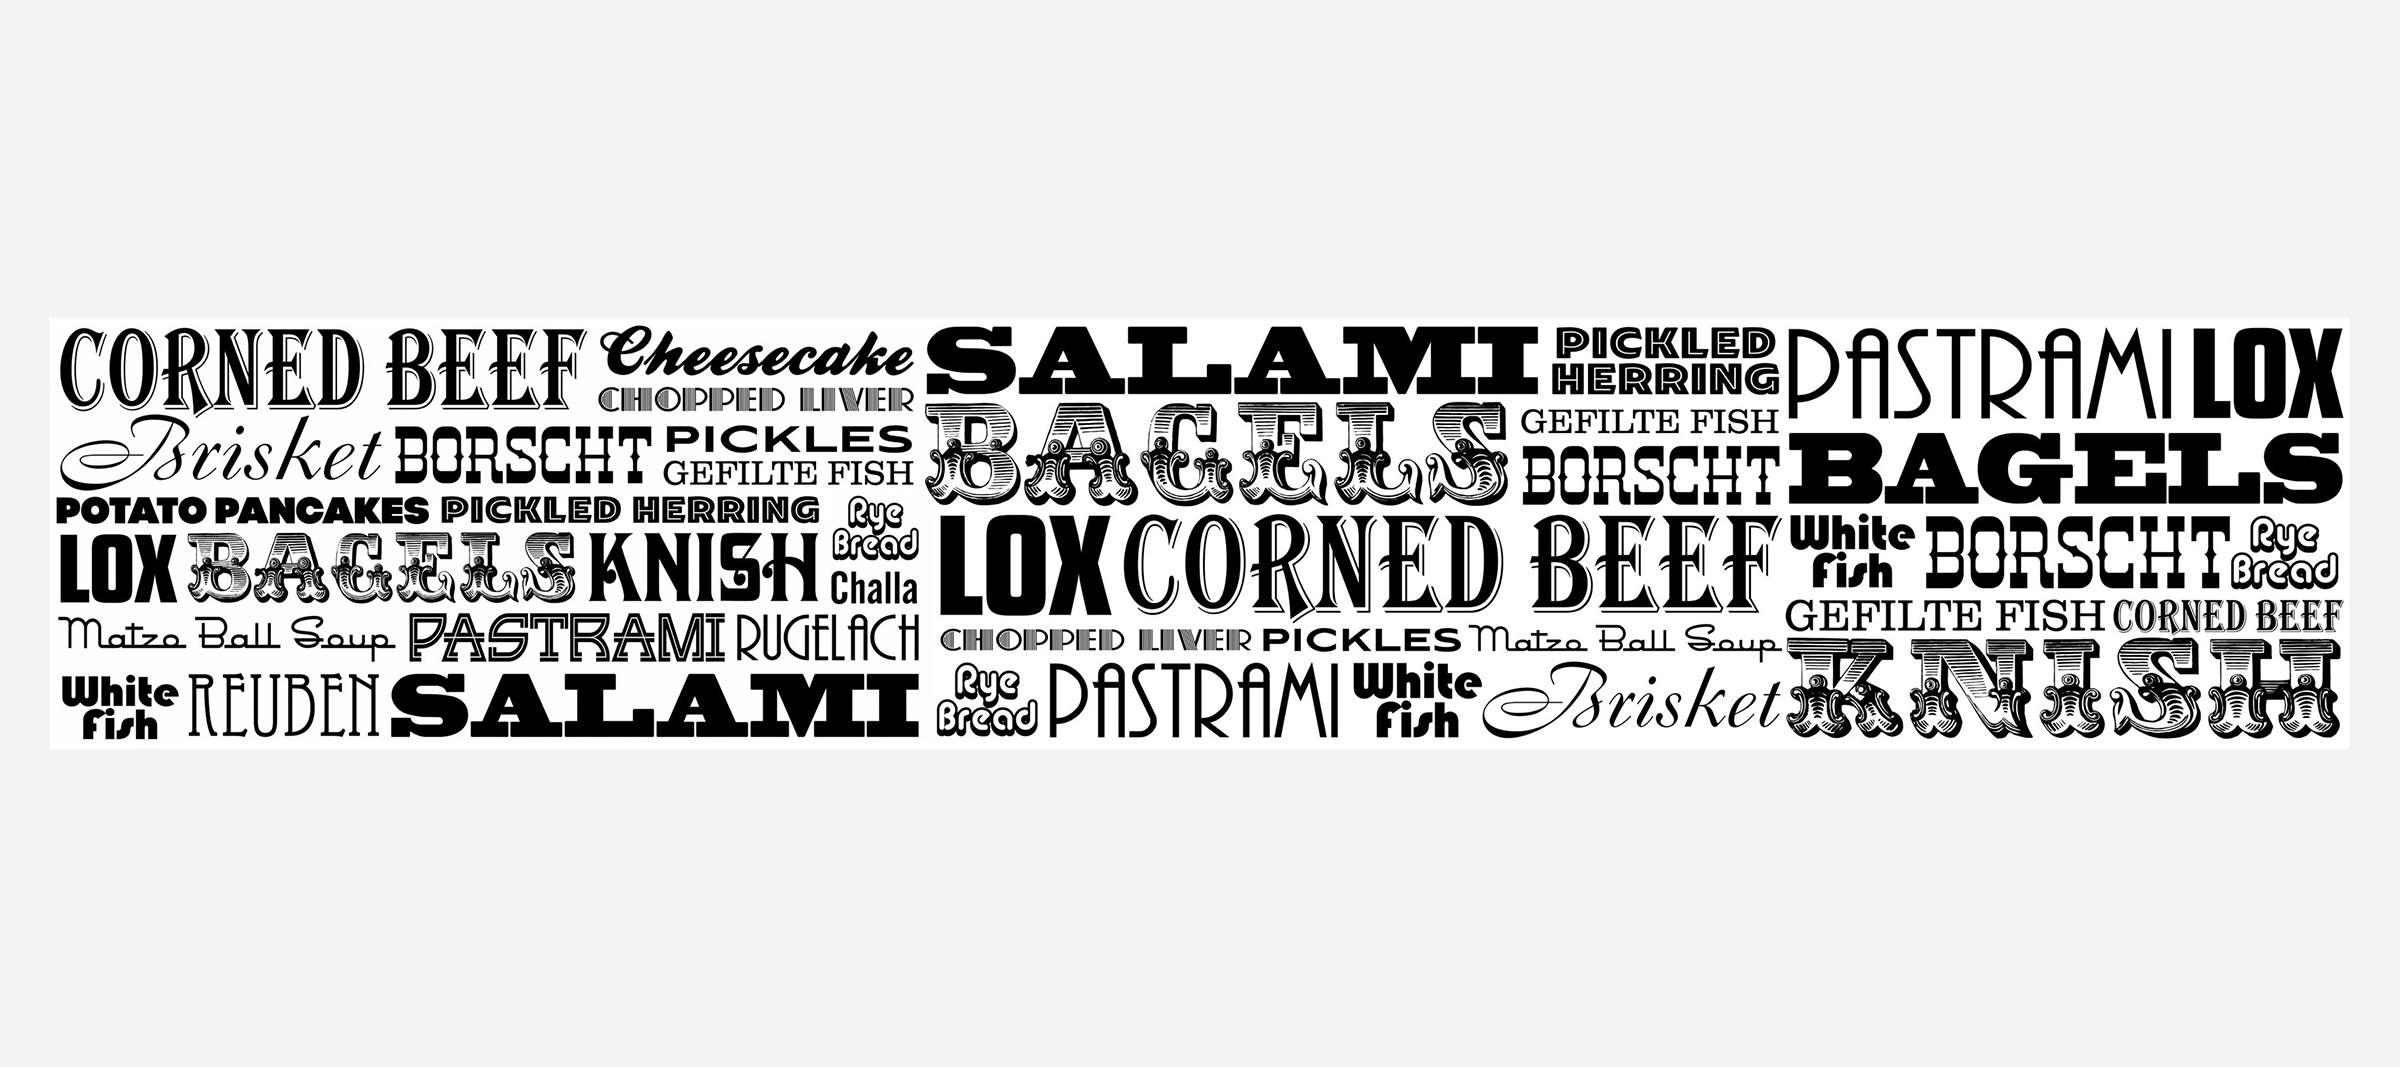 CORNED BEEF
Cheesecake
CHOPPED LIVER
Brisket
BORSCHT
PICKLES
GEFILTE FISH
POTATO PANCAKES
PICKLED HERRING
Rye
Bread
LOX
BAGELS
KNISH
Challa
Matzo Ball Soup
PASTRAMI
RUGELACH
White
Fish
REUBEN
SALAMI
SALAMI
PICKLED
HERRING
BAGELS
GEFILTE FISH
BORSCHT
LOX
CORNED BEEF
CHOPPED LIVER
PICKLES
Matzo Ball Soup
Rye
Bread
PASTRAMI
White
Fish
Brisket
PASTRAMI
LOX
BAGELS
White
Fish
BORSCHT
Rye
Bread
GEFILTE FISH
CORNED BEEF
KNISH